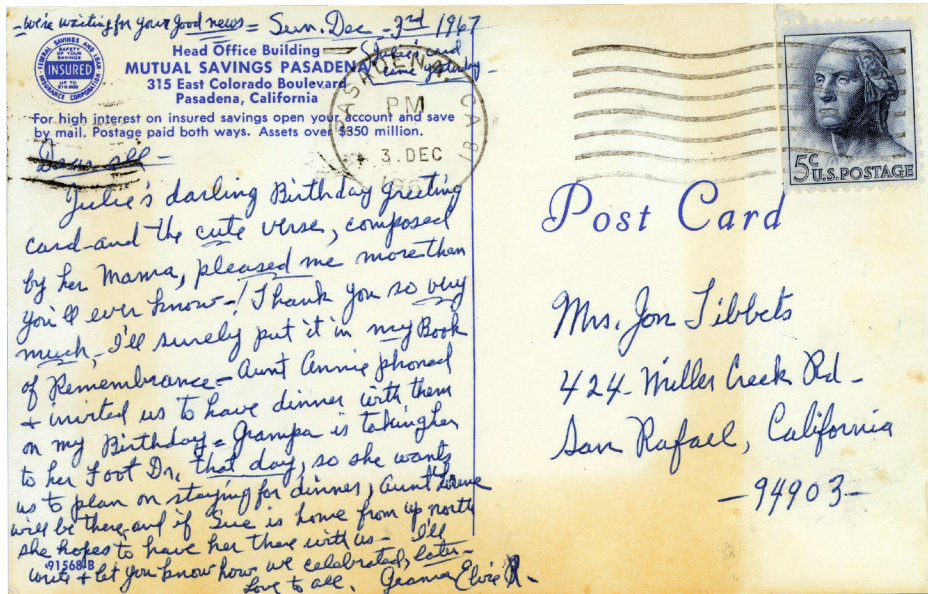 - We're waiting for your good news - Sun. Dec - 3rd 1967
- Julie's card
came yesterday -
FEDERAL SAVINGS AND LOAN INSURANCE CORPORATION
SAFETY
OF YOUR
SAVINGS
INSURED
UP TO
$15,000
Head Office Building
MUTUAL SAVINGS PASADENA
315 East Colorado Boulevard
Pasadena, California
For high interest on insured savings open your account and save
by mail. Postage paid both ways. Assets over $350 million.
PASADENA CA
PM
3. DEC
5¢
U.S. POSTAGE
Dear all -
Julie's darling Birthday greeting
card - and the cute verse, composed
by her Mama, pleased me more than
you'll ever know -! Thank you so very
much, - I'll surely put it in my Book
of Remembrance - Aunt Annie phoned
+ invited us to have dinner with them
on my Birthday - Grampa is taking her
to her Foot Dr. that day, so she wants
us to plan on staying for dinner, Aunt
will be there - and if Sue is home from up north
she hopes to have her there with us - I'll
write + let you know how we celebrated, later -
Love to all. Grama Elsie R. -
91568-B
Post Card
Mrs. Jon Tibbets
424 - Miller Creek Rd -
San Rafael, California
- 94903 -